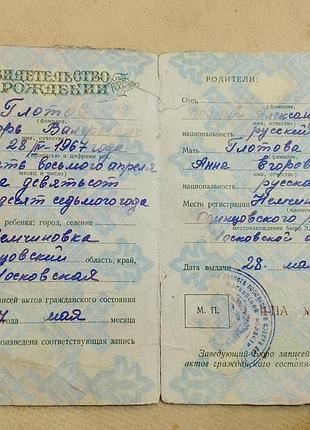 СВИДЕТЕЛЬСТВО
РОЖДЕНИИ
Глотов
(фамилия,
орь Валер
имя, отчество)
28/IV-1967 года
прописью и цифрами год,
ать восьмого апреля
месяц и число)
а девятьсот
десят седьмого года
ребенка: город, селение
Немчиновка
цовский область, край,
Московская
писей актов гражданского состояния
7 года мая месяца
произведена соответствующая запись
РОДИТЕЛИ:
Отец
(фамилия,
имя, отчество)
национальность русский
Мать Глотова
(фамилия,
Анна Егоровна
имя, отчество)
национальность русская
Место регистрации Немчин
наименование и
Одинцовского
местонахождение бюро ЗАГС
Московской об
Дата выдачи 28. мая
М. П.
Заведующий Бюро записей
актов гражданского состояния